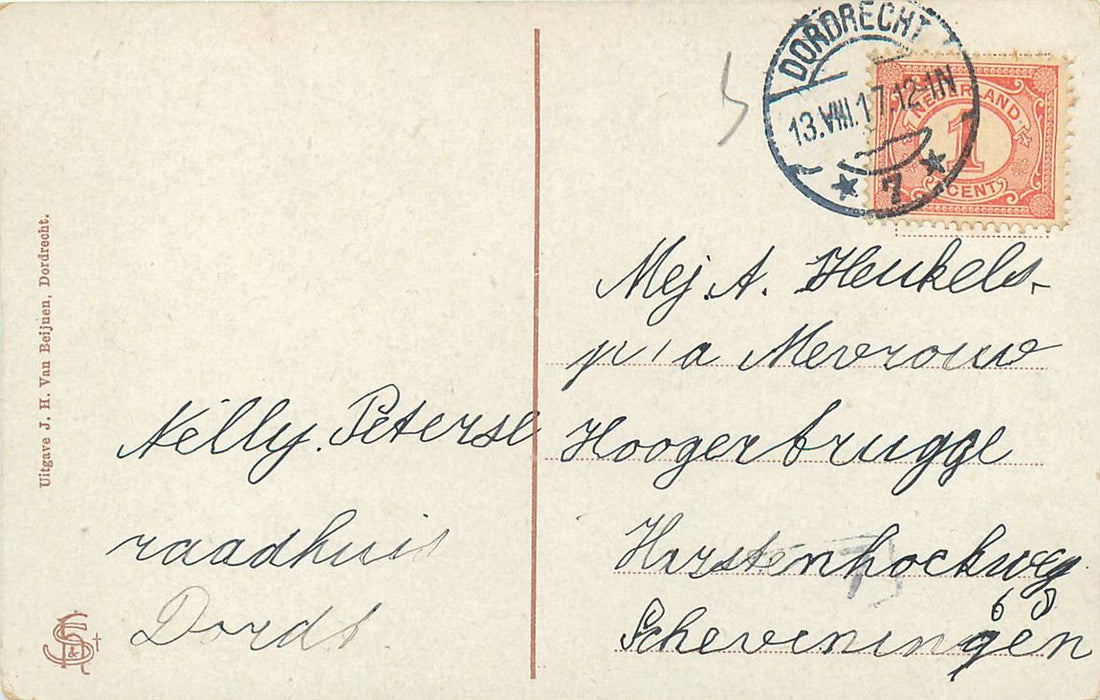 Uitgave J. H. Van Beijnen, Dordrecht.
Nelly. Peterse
raadhuis
Dordt
DORDRECHT
13.VIII.17.12-1N
7
NEDERLAND
1
CENT
Mej. A. Heukels-
p/a Mevrouw
Hoogerbrugge
Harstenhoekweg
68
Scheveningen